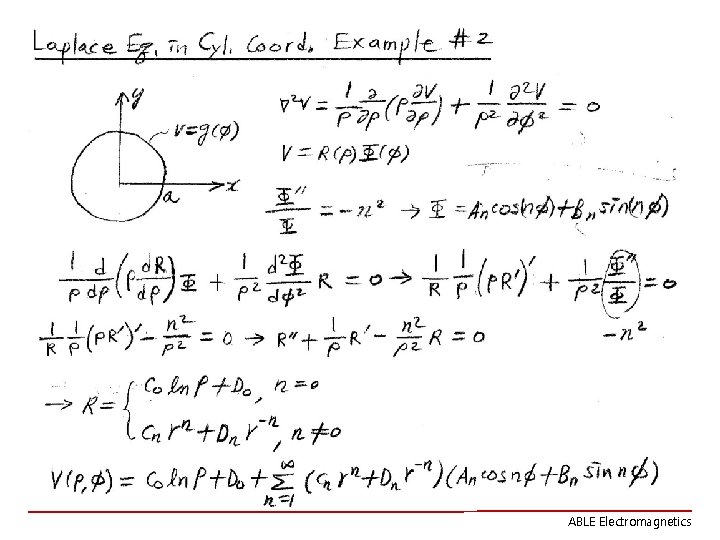 Laplace Eq. in Cyl. Coord. Example #2
y
V=g(φ)
a
x
∇²V = 1/ρ ∂/∂ρ (ρ ∂V/∂ρ) + 1/ρ² ∂²V/∂φ² = 0
V = R(ρ)Φ(φ)
Φ''/Φ = -n² → Φ = Aₙ cos(nφ) + Bₙ sin(nφ)
1/ρ d/dρ (ρ dR/dρ) Φ + 1/ρ² d²Φ/dφ² R = 0 → 1/R 1/ρ (ρR')' + 1/ρ² Φ''/Φ = 0
1/R 1/ρ (ρR')' - n²/ρ² = 0 → R'' + 1/ρ R' - n²/ρ² R = 0
-n²
→ R = { C₀ ln ρ + D₀, n=0
Cₙ rⁿ + Dₙ r⁻ⁿ, n≠0
V(ρ,φ) = C₀ ln ρ + D₀ + ∑ₙ₌₁^∞ (Cₙ rⁿ + Dₙ r⁻ⁿ)(Aₙ cos nφ + Bₙ sin nφ)
ABLE Electromagnetics